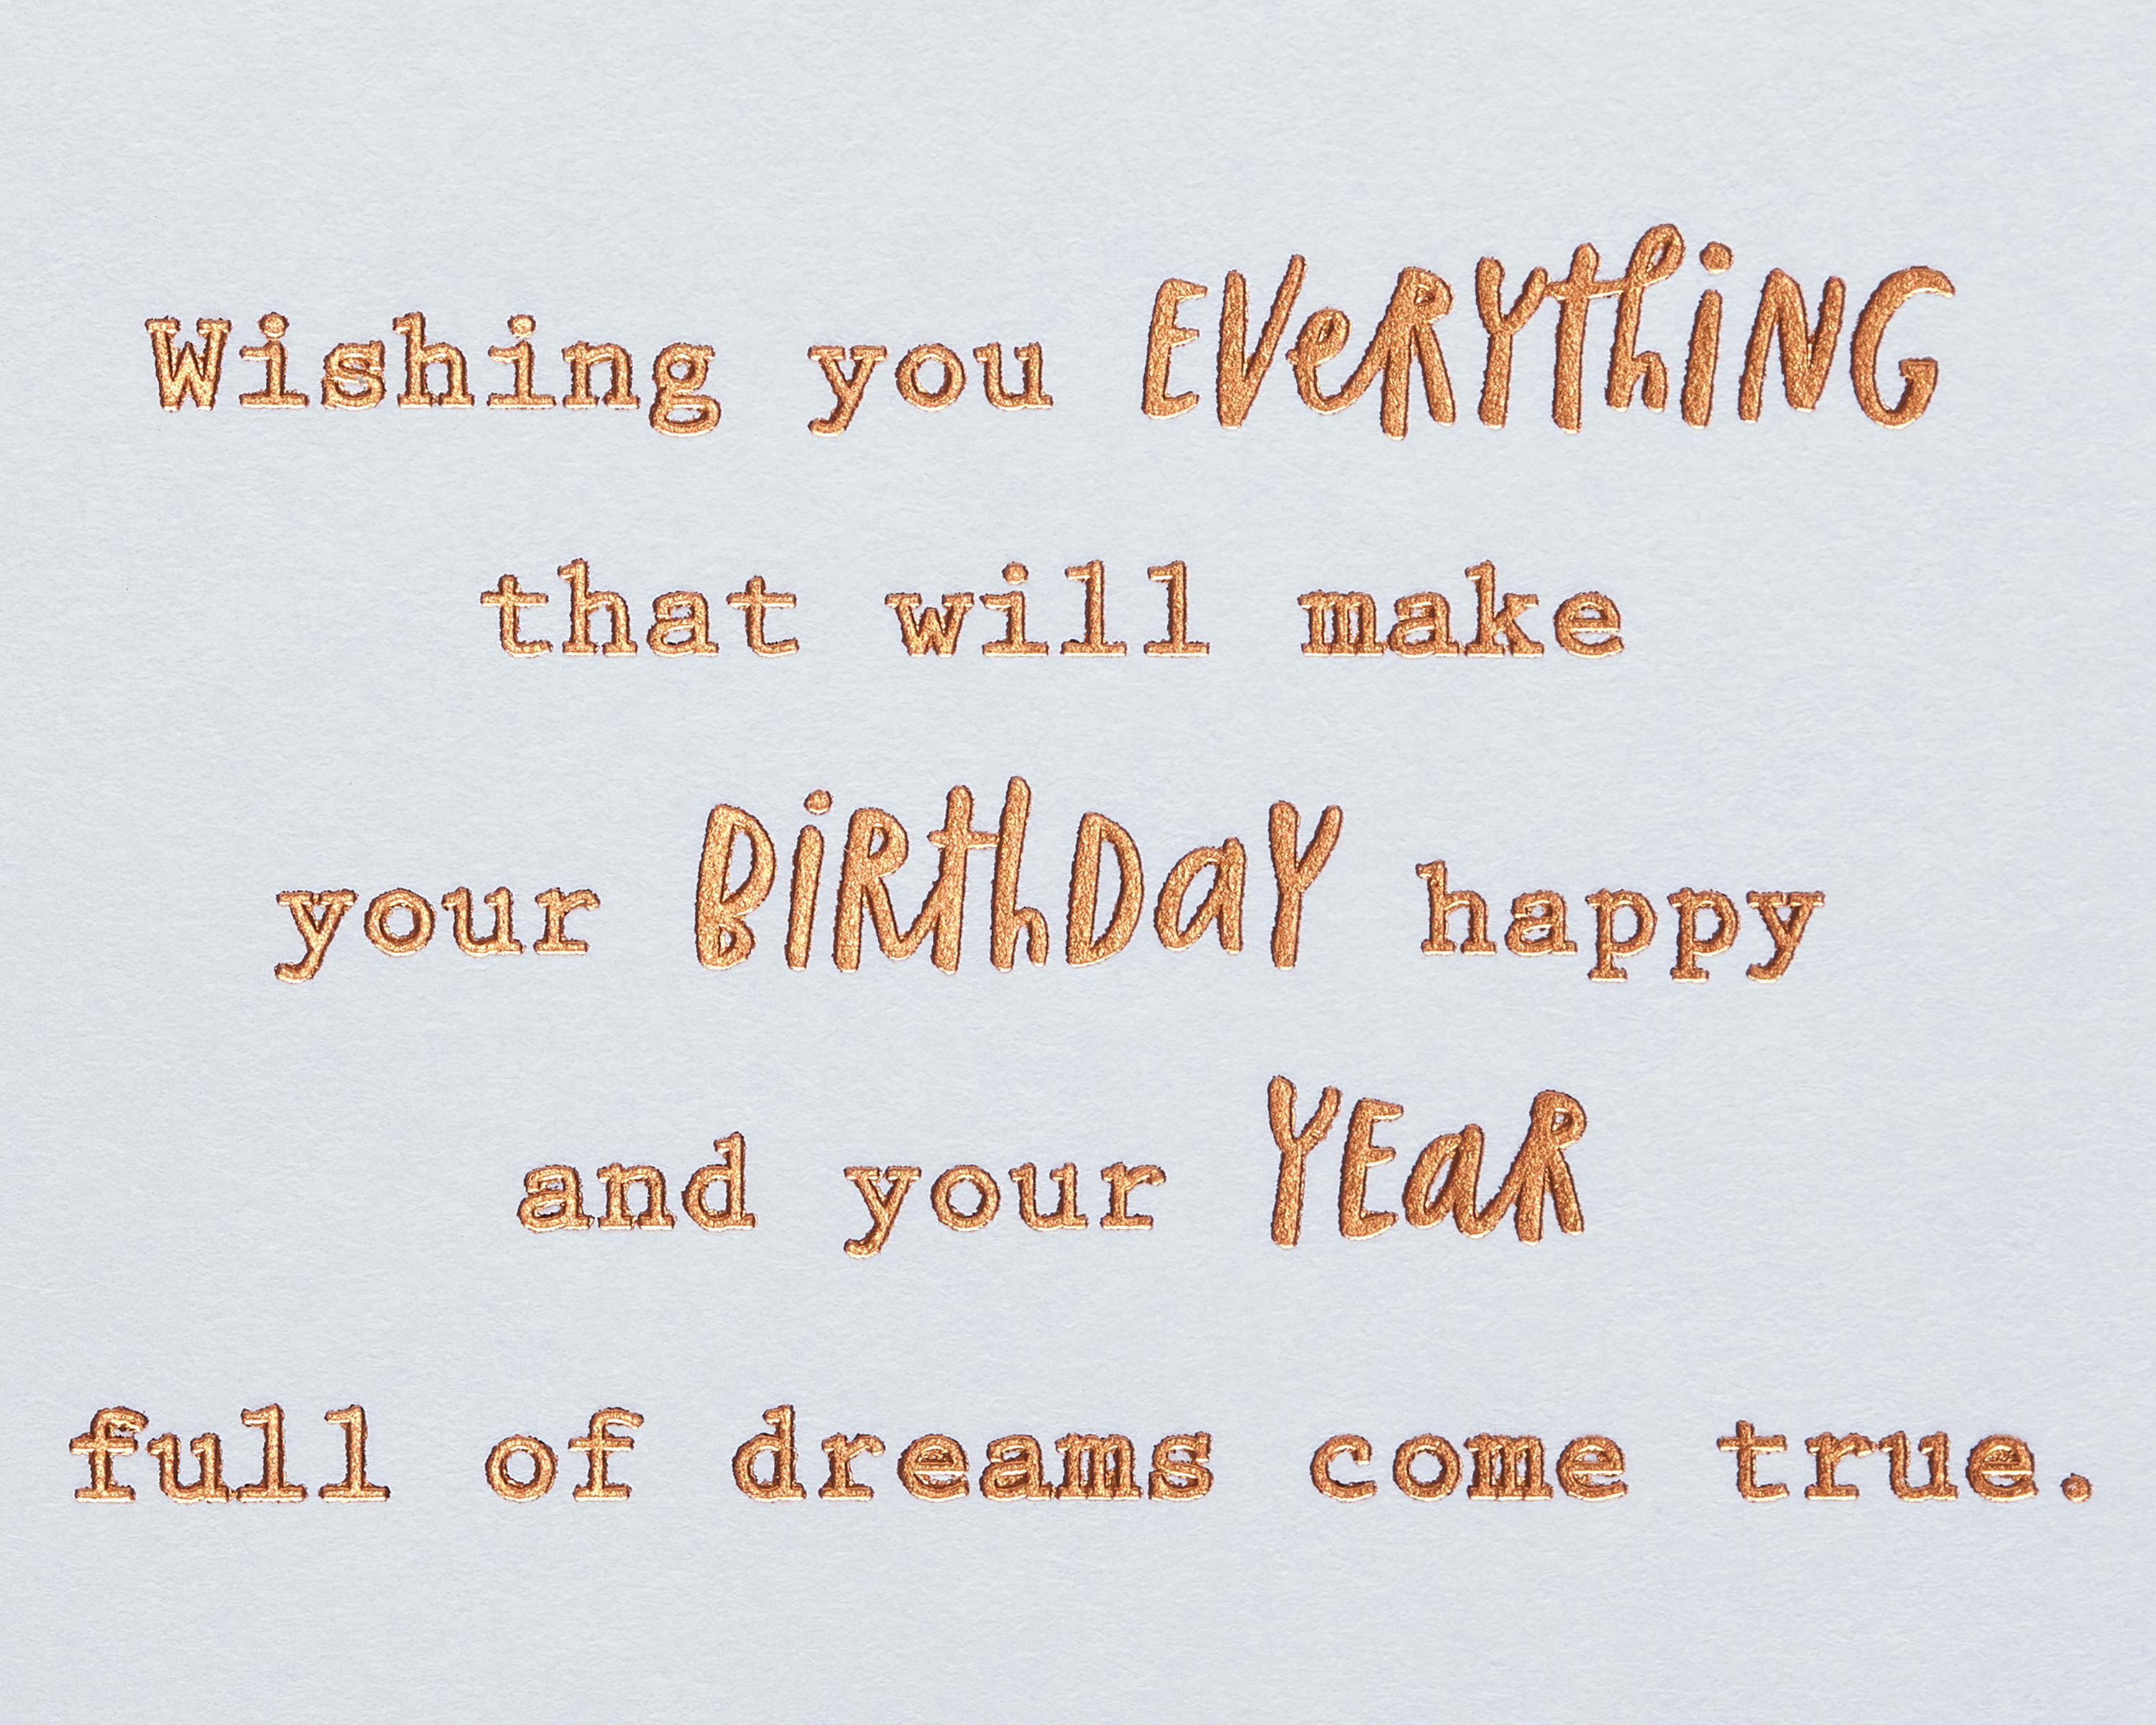 Wishing you EVeRYthiNG
that will make
your BiRthDaY happy
and your YEaR
full of dreams come true.